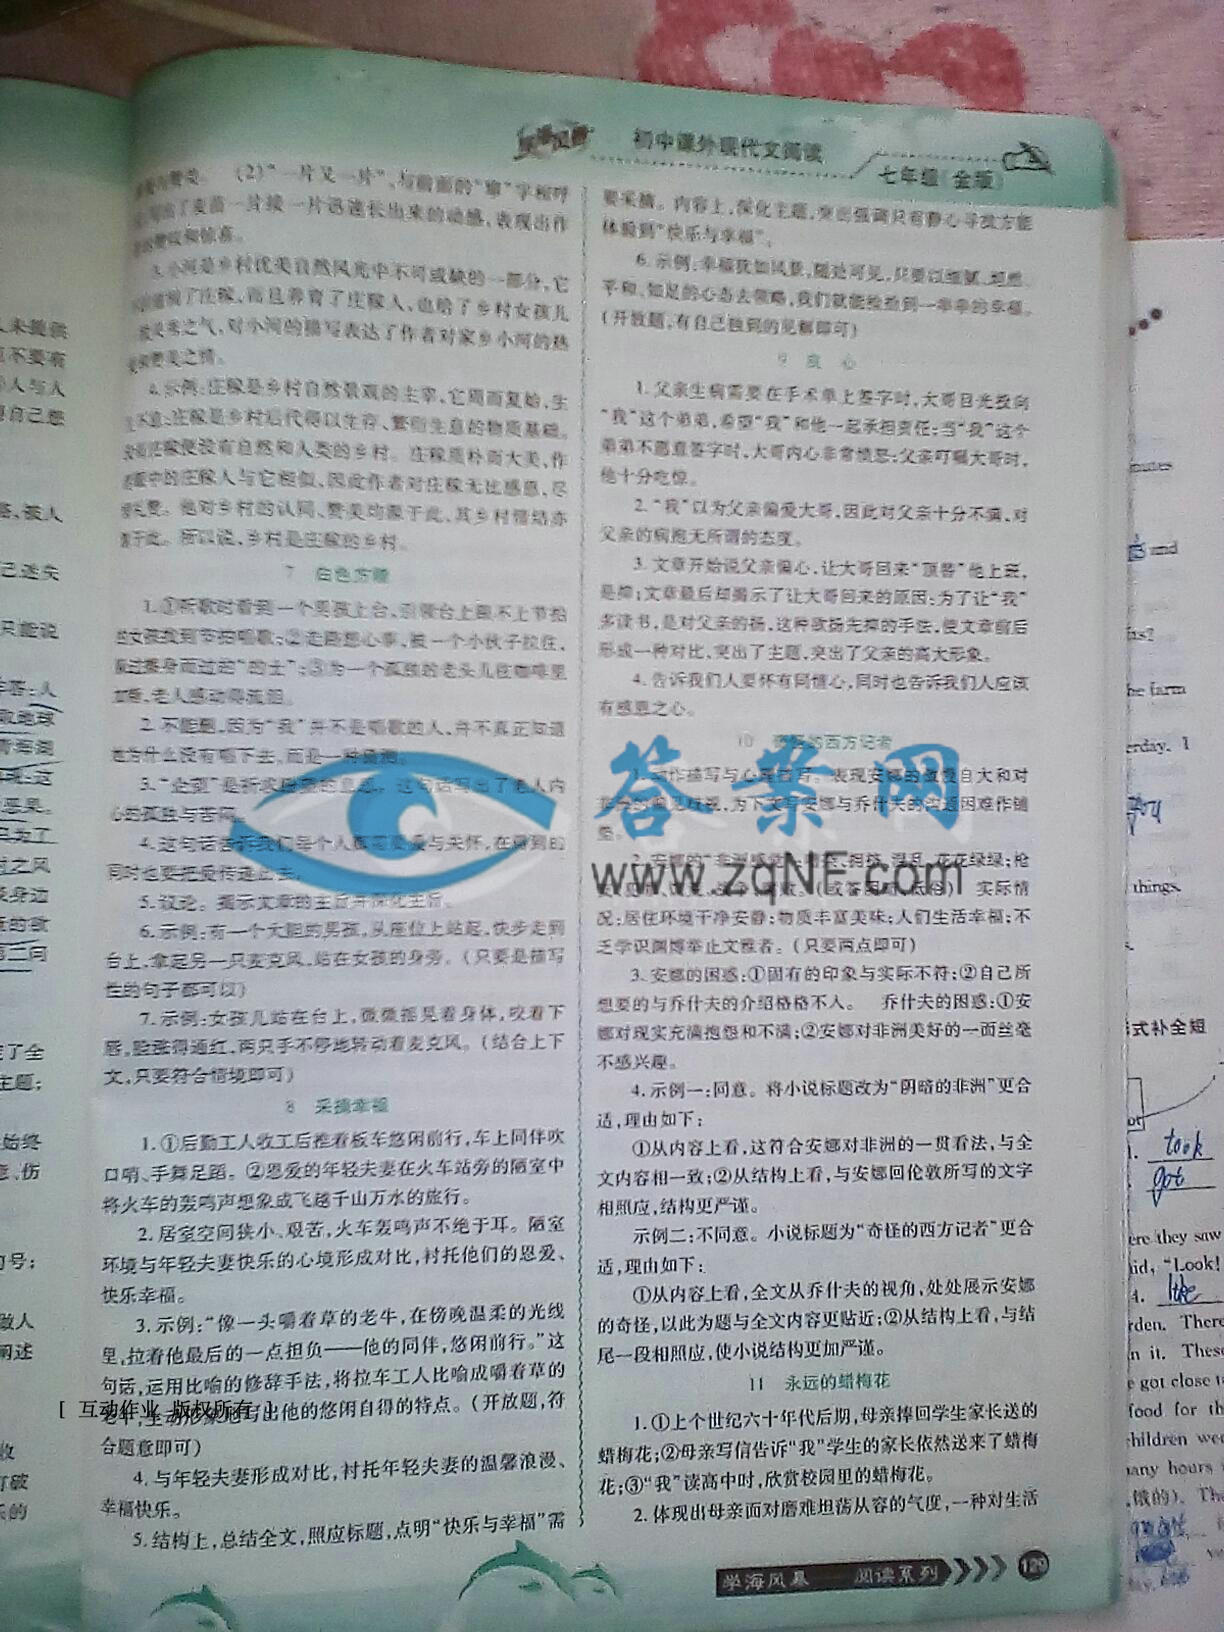 初中课外现代文阅读
七年级(金版)
(2)“一片又一片”,与前面的“窜”字相呼
出了麦苗一片接一片迅速长出来的动感,表现出作
3.小河是乡村优美自然风光中不可或缺的一部分,它
了庄稼,而且养育了庄稼人,也给了乡村女孩儿
秀之气,对小河的描写表达了作者对家乡小河的热
美之情。
4.示例:庄稼是乡村自然景观的主宰,它周而复始,生
庄稼是乡村后代得以生存、繁衍生息的物质基础。
庄稼便没有自然和人类的乡村。庄稼质朴而大美,作
中的庄稼人与它相似,因此作者对庄稼无比感恩,尽
他对乡村的认同、赞美均源于此,其乡村情结亦
于此。所以说,乡村是庄稼的乡村。
7 白色方糖
1.①听歌时看到一个男孩上台,引领台上跟不上节拍
的女孩找到节拍唱歌;②走路想心事,被一个小伙子拉住,
躲过擦身而过的“的士”;③为一个孤独的老头儿往咖啡里
加糖,老人感动得流泪。
2.不能删,因为“我”并不是唱歌的人,并不真正知道
她为什么没有唱下去,而是一种猜测。
3.“企望”是祈求盼望的意思。这句话写出了老人内
心的孤独与苦闷。
4.这句话告诉我们每个人都需要爱与关怀,在得到的
同时也要把爱传递出去。
5.议论。揭示文章的主旨并深化主旨。
6.示例:有一个大胆的男孩,从座位上站起,快步走到
台上,拿起另一只麦克风,站在女孩的身旁。(只要是描写
性的句子都可以)
7.示例:女孩儿站在台上,微微摇晃着身体,咬着下
唇,脸涨得通红,两只手不停地转动着麦克风。(结合上下
文,只要符合情境即可)
8 采摘幸福
1.①后勤工人收工后推着板车悠闲前行,车上同伴吹
口哨、手舞足蹈。②恩爱的年轻夫妻在火车站旁的陋室中
将火车的轰鸣声想象成飞越千山万水的旅行。
2.居室空间狭小、艰苦,火车轰鸣声不绝于耳。陋室
环境与年轻夫妻快乐的心境形成对比,衬托他们的恩爱、
快乐幸福。
3.示例:“像一头嚼着草的老牛,在傍晚温柔的光线
里,拉着他最后的一点担负——他的同伴,悠闲前行。”这
句话,运用比喻的修辞手法,将拉车工人比喻成嚼着草的
老牛,生动形象地写出他的悠闲自得的特点。(开放题,符
合题意即可)
4.与年轻夫妻形成对比,衬托年轻夫妻的温馨浪漫、
幸福快乐。
5.结构上,总结全文,照应标题,点明“快乐与幸福”需
要采摘。内容上,深化主题,突出强调只有静心寻找方能
体验到“快乐与幸福”。
6.示例:幸福犹如风景,随处可见,只要以细腻、坦然、
平和、知足的心态去领略,我们就能捡拾到一串串的幸福。
(开放题,有自己独到的见解即可)
9 良心
1.父亲生病需要在手术单上签字时,大哥目光投向
“我”这个弟弟,希望“我”和他一起承担责任;当“我”这个
弟弟不愿意签字时,大哥内心非常愤怒;父亲叮嘱大哥时,
他十分吃惊。
2.“我”以为父亲偏爱大哥,因此对父亲十分不满,对
父亲的病抱无所谓的态度。
3.文章开始说父亲偏心,让大哥回来“顶替”他上班,
是抑;文章最后却揭示了让大哥回来的原因:为了让“我”
多读书,是对父亲的扬,这种欲扬先抑的手法,使文章前后
形成一种对比,突出了主题,突出了父亲的高大形象。
4.告诉我们人要怀有同情心,同时也告诉我们人应该
有感恩之心。
10 奇怪的西方记者
1.动作描写与心理描写。表现安娜的傲慢自大和对
非洲的偏见歧视,为下文写安娜与乔什夫的沟通困难作铺
垫。
2.安娜的“非洲感觉”:拥挤、混乱、花花绿绿;枪
(或答困窘、低俗) 实际情
况:居住环境干净安静;物质丰富美味;人们生活幸福;不
乏学识渊博举止文雅者。(只要两点即可)
3.安娜的困惑:①固有的印象与实际不符;②自己所
想要的与乔什夫的介绍格格不入。 乔什夫的困惑:①安
娜对现实充满抱怨和不满;②安娜对非洲美好的一面丝毫
不感兴趣。
4.示例一:同意。将小说标题改为“阴暗的非洲”更合
适,理由如下:
①从内容上看,这符合安娜对非洲的一贯看法,与全
文内容相一致;②从结构上看,与安娜回伦敦所写的文字
相照应,结构更严谨。
示例二:不同意。小说标题为“奇怪的西方记者”更合
适,理由如下:
①从内容上看,全文从乔什夫的视角,处处展示安娜
的奇怪,以此为题与全文内容更贴近;②从结构上看,与结
尾一段相照应,使小说结构更加严谨。
11 永远的蜡梅花
1.①上个世纪六十年代后期,母亲捧回学生家长送的
蜡梅花;②母亲写信告诉“我”学生的家长依然送来了蜡梅
花;③“我”读高中时,欣赏校园里的蜡梅花。
2.体现出母亲面对磨难坦荡从容的气度,一种对生活
学海风暴 阅读系列
129
答案网
www.zqNF.com
[ 互动作业 版权所有 ]
人未提供
不要有
人与人
得自己想
落,谈人
己迷失
只能说
人
地球
青海湖
这
恶果。
只为了
之风
身边
的歌
第二问
定了全
主题;
始终
伤
句号;
做人
阐述
收
打破
乐的
minutes
and
he farm
erday. I
things.
形式补全短
took
got
ere they saw
aid, “Look!
4. like
rden. There
n it. These
e got close t
food for th
children wer
any hours
饿的). Th